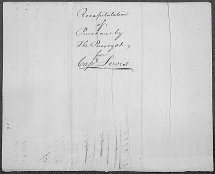 Recapitulation
of
Purchases by
The Purveyor
for
Capt. Lewis